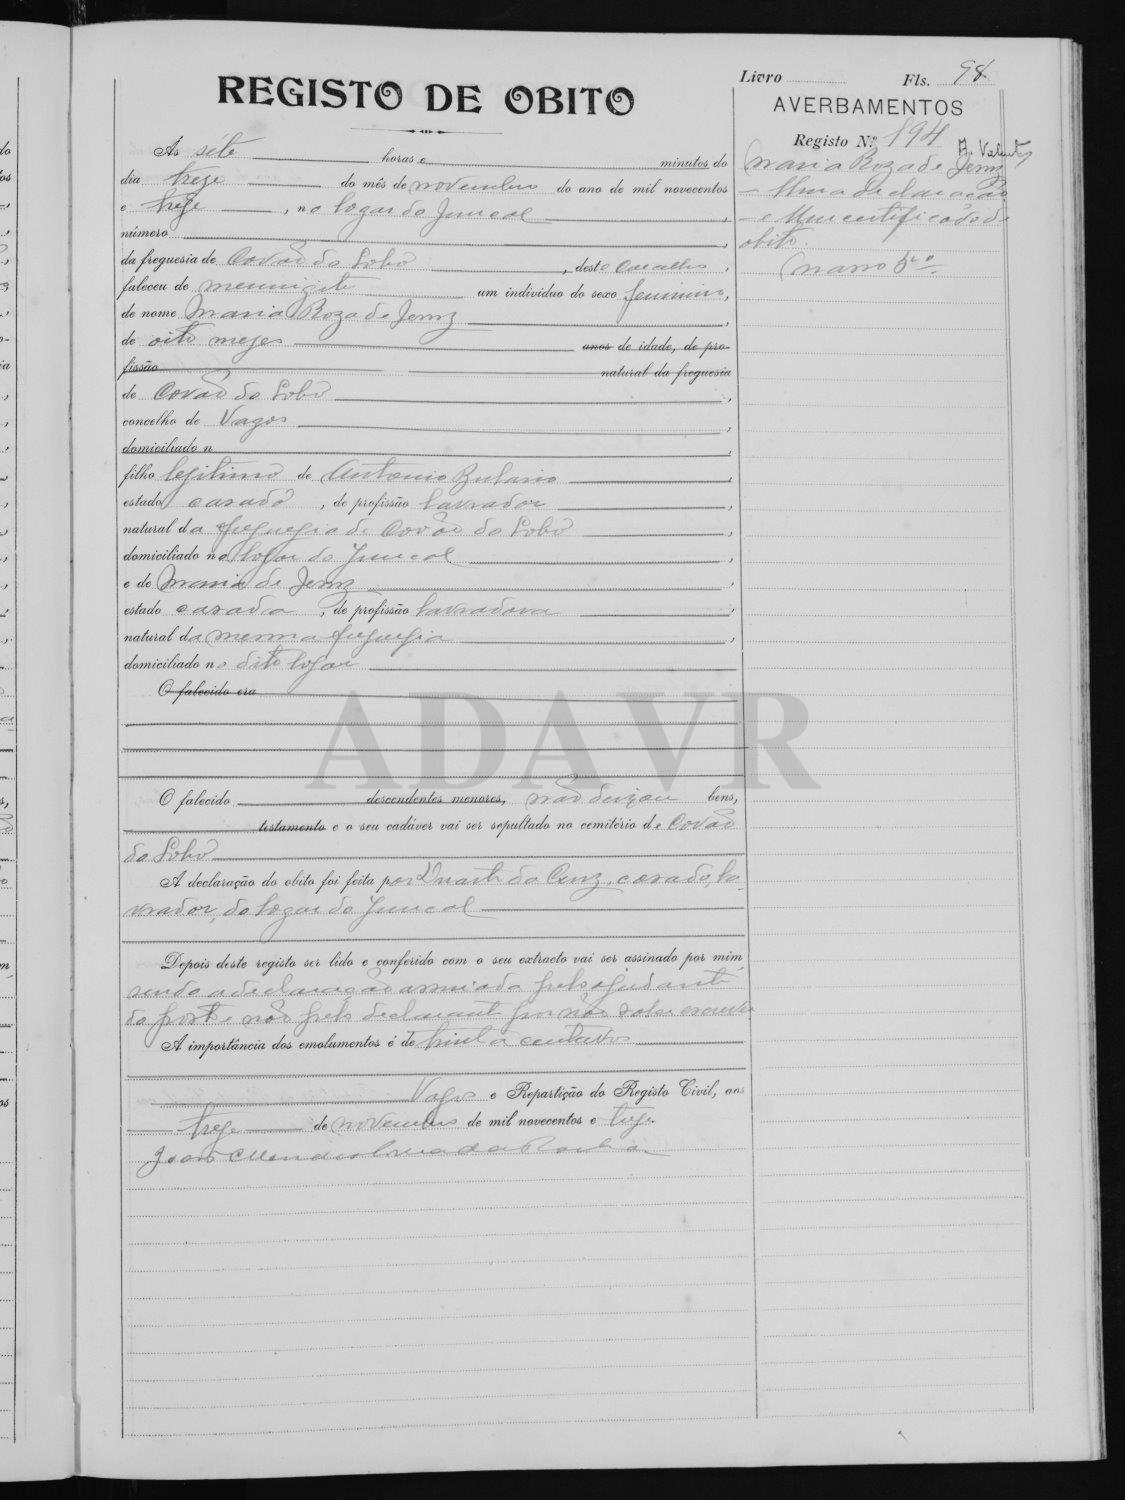 Livro Fls. 98
REGISTO DE OBITO
AVERBAMENTOS
Registo N.º 194
Ás sete horas e minutos do
dia treze do mês de novembro do ano de mil novecentos
e treze, no logar do Juncal,
número,
da freguesia de Covão do Lobo, deste concelho,
faleceu de meningite um individuo do sexo feminino,
de nome Maria Roza de Jezuz,
de oito mezes anos de idade, de pro-
fissão natural da freguesia
de Covão do Lobo,
concelho de Vagos,
domiciliado n,
filho legitimo de Antonio,
estado casado, de profissão lavrador,
natural da freguezia de Covão do Lobo,
domiciliado no logar do Juncal,
e de Maria de Jezuz,
estado casada, de profissão lavradora,
natural da mesma freguezia,
domiciliado no dito logar
O falecido era
ADAVR
O falecido descendentes menores, não deixou bens,
testamento e o seu cadáver vai ser sepultado no cemitério de Covão
do Lobo
A declaração do obito foi feita por Duarte da Cruz, casado, la-
vrador, do logar do Juncal
Depois deste registo ser lido e conferido com o seu extracto vai ser assinado por mim
sendo a declaração assinada pelo ajudante
do posto e não pelo declarante por não saber escrever
A importância dos emolumentos é de trinta centavos
Vagos e Repartição do Registo Civil, aos
treze de novembro de mil novecentos e treze.
João da Rocha
Maria Roza de Jezuz
— Uma declaração
— e Um certificado de
obito.
Maço 5.º